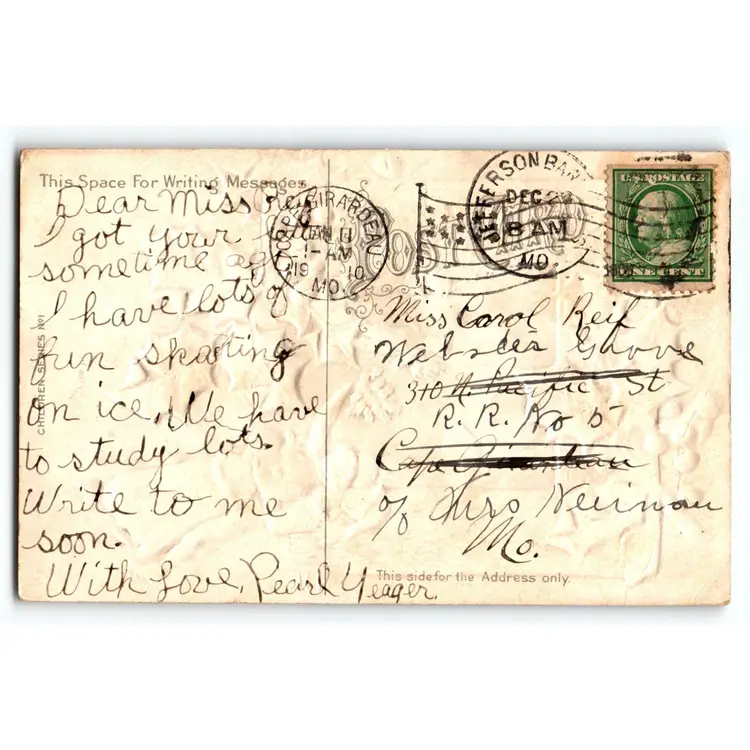 This Space For Writing Messages
Dear Miss Rei
I got your
sometime ago
I have lots of
fun skating
on ice. We have
to study lots.
Write to me
soon.
With Love, Pearl Yeager.
CHILDREN SERIES No1
CAPE GIRARDEAU
JAN 11
1-AM
19 10
MO.
JEFFERSON BAR
DEC
8 AM
MO.
U.S. POSTAGE
ONE CENT
Miss Carol Reif
Webster Grove
310 N. Pacific St
R. R. No 5
Cape Girardeau
c/o
Mo.
This side for the Address only.